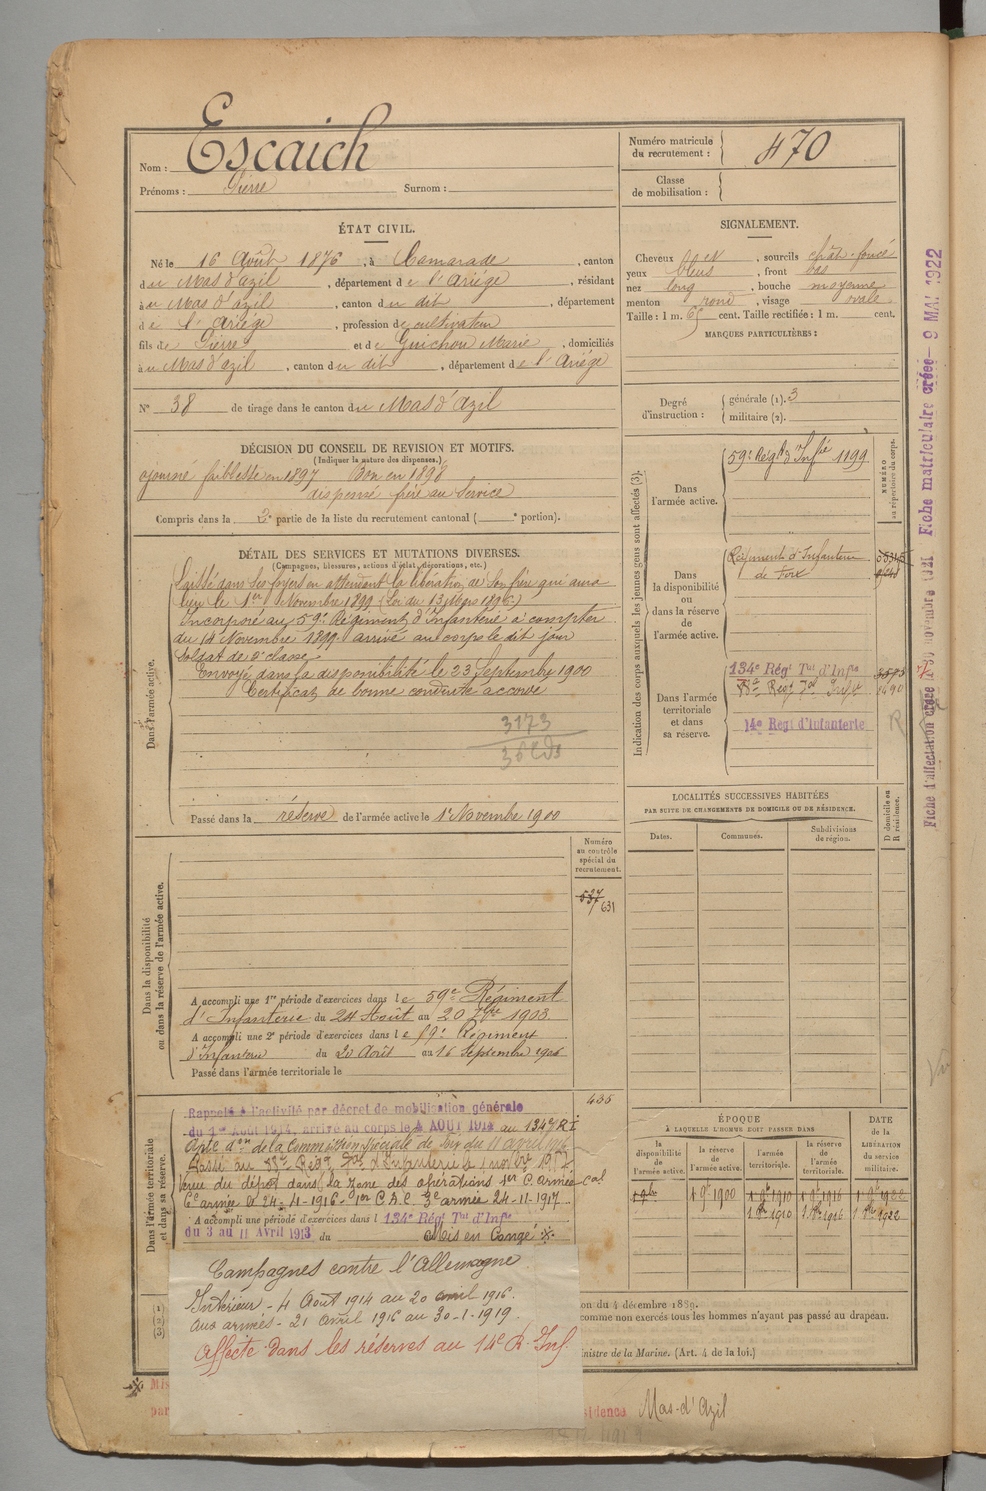 Nom : Escaich
Prénoms : Pierre Surnom :
Numéro matricule du recrutement : 470
Classe de mobilisation :
ÉTAT CIVIL.
Né le 16 Août 1876, à Camarade, canton
du Mas d'azil, département de l'Ariége, résidant
à u Mas d'azil, canton du dit, département
de l'Ariége, profession de cultivateur
fils de Pierre et de Guichou Marie, domiciliés
à u Mas d'azil, canton du dit, département de l'Ariége
N° 38 de tirage dans le canton du Mas d'Azil
SIGNALEMENT.
Cheveux , sourcils chât. foncé
yeux bleus, front bas
nez long, bouche moyenne
menton rond, visage ovale
Taille : 1 m. 65 cent. Taille rectifiée : 1 m. cent.
MARQUES PARTICULIÈRES :
Degré d'instruction : générale (1). 3
militaire (2).
DÉCISION DU CONSEIL DE REVISION ET MOTIFS.
(Indiquer la nature des dispenses.)
ajourné faiblesse en 1897 Bon en 1898
dispensé frère au Service
Compris dans la 2e partie de la liste du recrutement cantonal ( e portion).
DÉTAIL DES SERVICES ET MUTATIONS DIVERSES.
(Campagnes, blessures, actions d'éclat, décorations, etc.)
Dans l'armée active.
Laissé dans ses foyers en attendant la libération de son frère qui aura
lieu le 1er Novembre 1899 (Loi du 13 Mars 1896.)
Incorporé au 59e Régiment d'Infanterie à compter
du 14 Novembre 1899. arrivé au corps le dit jour
soldat de 2e classe
Envoyé dans la disponibilité le 23 Septembre 1900
Certificat de bonne conduite accordé
3173
Passé dans la réserve de l'armée active le 1er Novembre 1900
Indication des corps auxquels les jeunes gens sont affectés (3).
NUMÉRO au répertoire du corps.
Dans l'armée active.
59e Régt d'Infie 1199
Dans la disponibilité ou dans la réserve de l'armée active.
Régiment d'Infanterie
de Foix
Dans l'armée territoriale et dans sa réserve.
134e Régt Tal d'Infie
14e Régt d'Infanterie
R
LOCALITÉS SUCCESSIVES HABITÉES
PAR SUITE DE CHANGEMENTS DE DOMICILE OU DE RÉSIDENCE.
Dates. Communes. Subdivisions de région. D domicile ou R résidence.
Dans la disponibilité ou dans la réserve de l'armée active.
Numéro au contrôle spécial du recrutement.
537
631
A accompli une 1re période d'exercices dans le 59e Régiment
d'Infanterie du 24 Août au 20 7bre 1903.
A accompli une 2e période d'exercices dans le 59e Régiment
d'Infanterie du 20 Août au 16 Septembre 1906
Passé dans l'armée territoriale le
Dans l'armée territoriale et dans sa réserve.
435
Rappelé à l'activité par décret de mobilisation générale
du 1er Août 1914, arrivé au corps le 4 AOUT 1914 au 134e RI
Apte don de la Commission spéciale de du 11 avril 1916
Passé au 88e Régt Tal d'Infanterie le 1 novbre 1917.
Venu du dépôt dans la zone des opérations 1er C. armée cal
6e armée le 24-4-1916 - 1er C.A.C. 3e armée 24-11-1917
A accompli une période d'exercices dans l 134e Régt Tal d'Infie
du 3 au 11 Avril 1913 du Mis en Congé ※
Campagnes contre l'Allemagne
Intérieur - 4 Août 1914 au 20 avril 1916.
Aux armées - 21 avril 1916 au 30-1-1919.
Affecté dans les réserves au 14e R. Inf.
ÉPOQUE
À LAQUELLE L'HOMME DOIT PASSER DANS
la disponibilité de l'armée active. la réserve de l'armée active. l'armée territoriale. la réserve de l'armée territoriale.
DATE de la LIBÉRATION du service militaire.
1 9bre 1900 1 9bre 1910 1 9bre 1916 1 9bre 1922
1 8bre 1910 1 8bre 1916 1 8bre 1922
on du 4 décembre 1889.
comme non exercés tous les hommes n'ayant pas passé au drapeau.
nistre de la Marine. (Art. 4 de la loi.)
※ Mis
par
sidence Mas-d'Azil
Fiche matriculaire créée - 9 MAI 1922